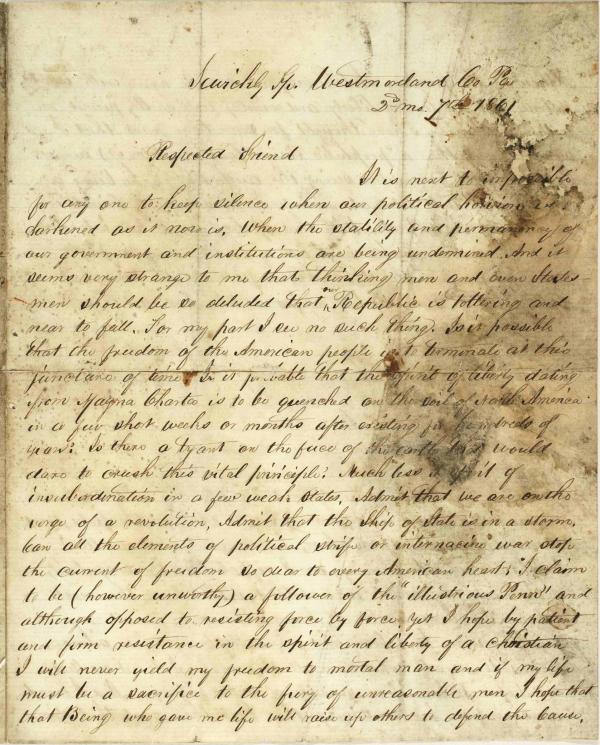 Sewickly Tp. Westmoreland Co Pa
2d mo. 7th 1861
Respected Friend
It is next to impossible
for any one to keep silence when our political horizon is
darkened as it now is, When the stability and permanency of
our government and institutions are being undermined. And it
seems very strange to me that thinking men and even States
men should be so deluded that our Republic is tottering and
near to fall. For my part I see no such thing. Is it possible
that the freedom of the American people is to terminate at this
juncture of time? Is it probable that the spirit of liberty dating
from Magna Charta is to be quenched on the soil of North America
in a few short weeks or months after existing for hundreds of
years? Is there a tyant on the face of the earth that would
dare to crush this vital principle? Much less a spirit of
insubordination in a few weak States. Admit that we are on the
verge of a revolution, Admit that the Ship of State is in a storm.
Can all the elements of political strife or internacine war stop
the current of freedom so dear to every American heart? I claim
to be (however unworthy) a follower of the "illustrious Penn" and
although opposed to resisting force by force yet I hope by patient
and firm resistance in the spirit and liberty of a Christian
I will never yield my freedom to mortal man and if my life
must be a sacrifice to the fury of unreasonable men I hope that
that Being who gave me life will raise up others to defend the Cause.